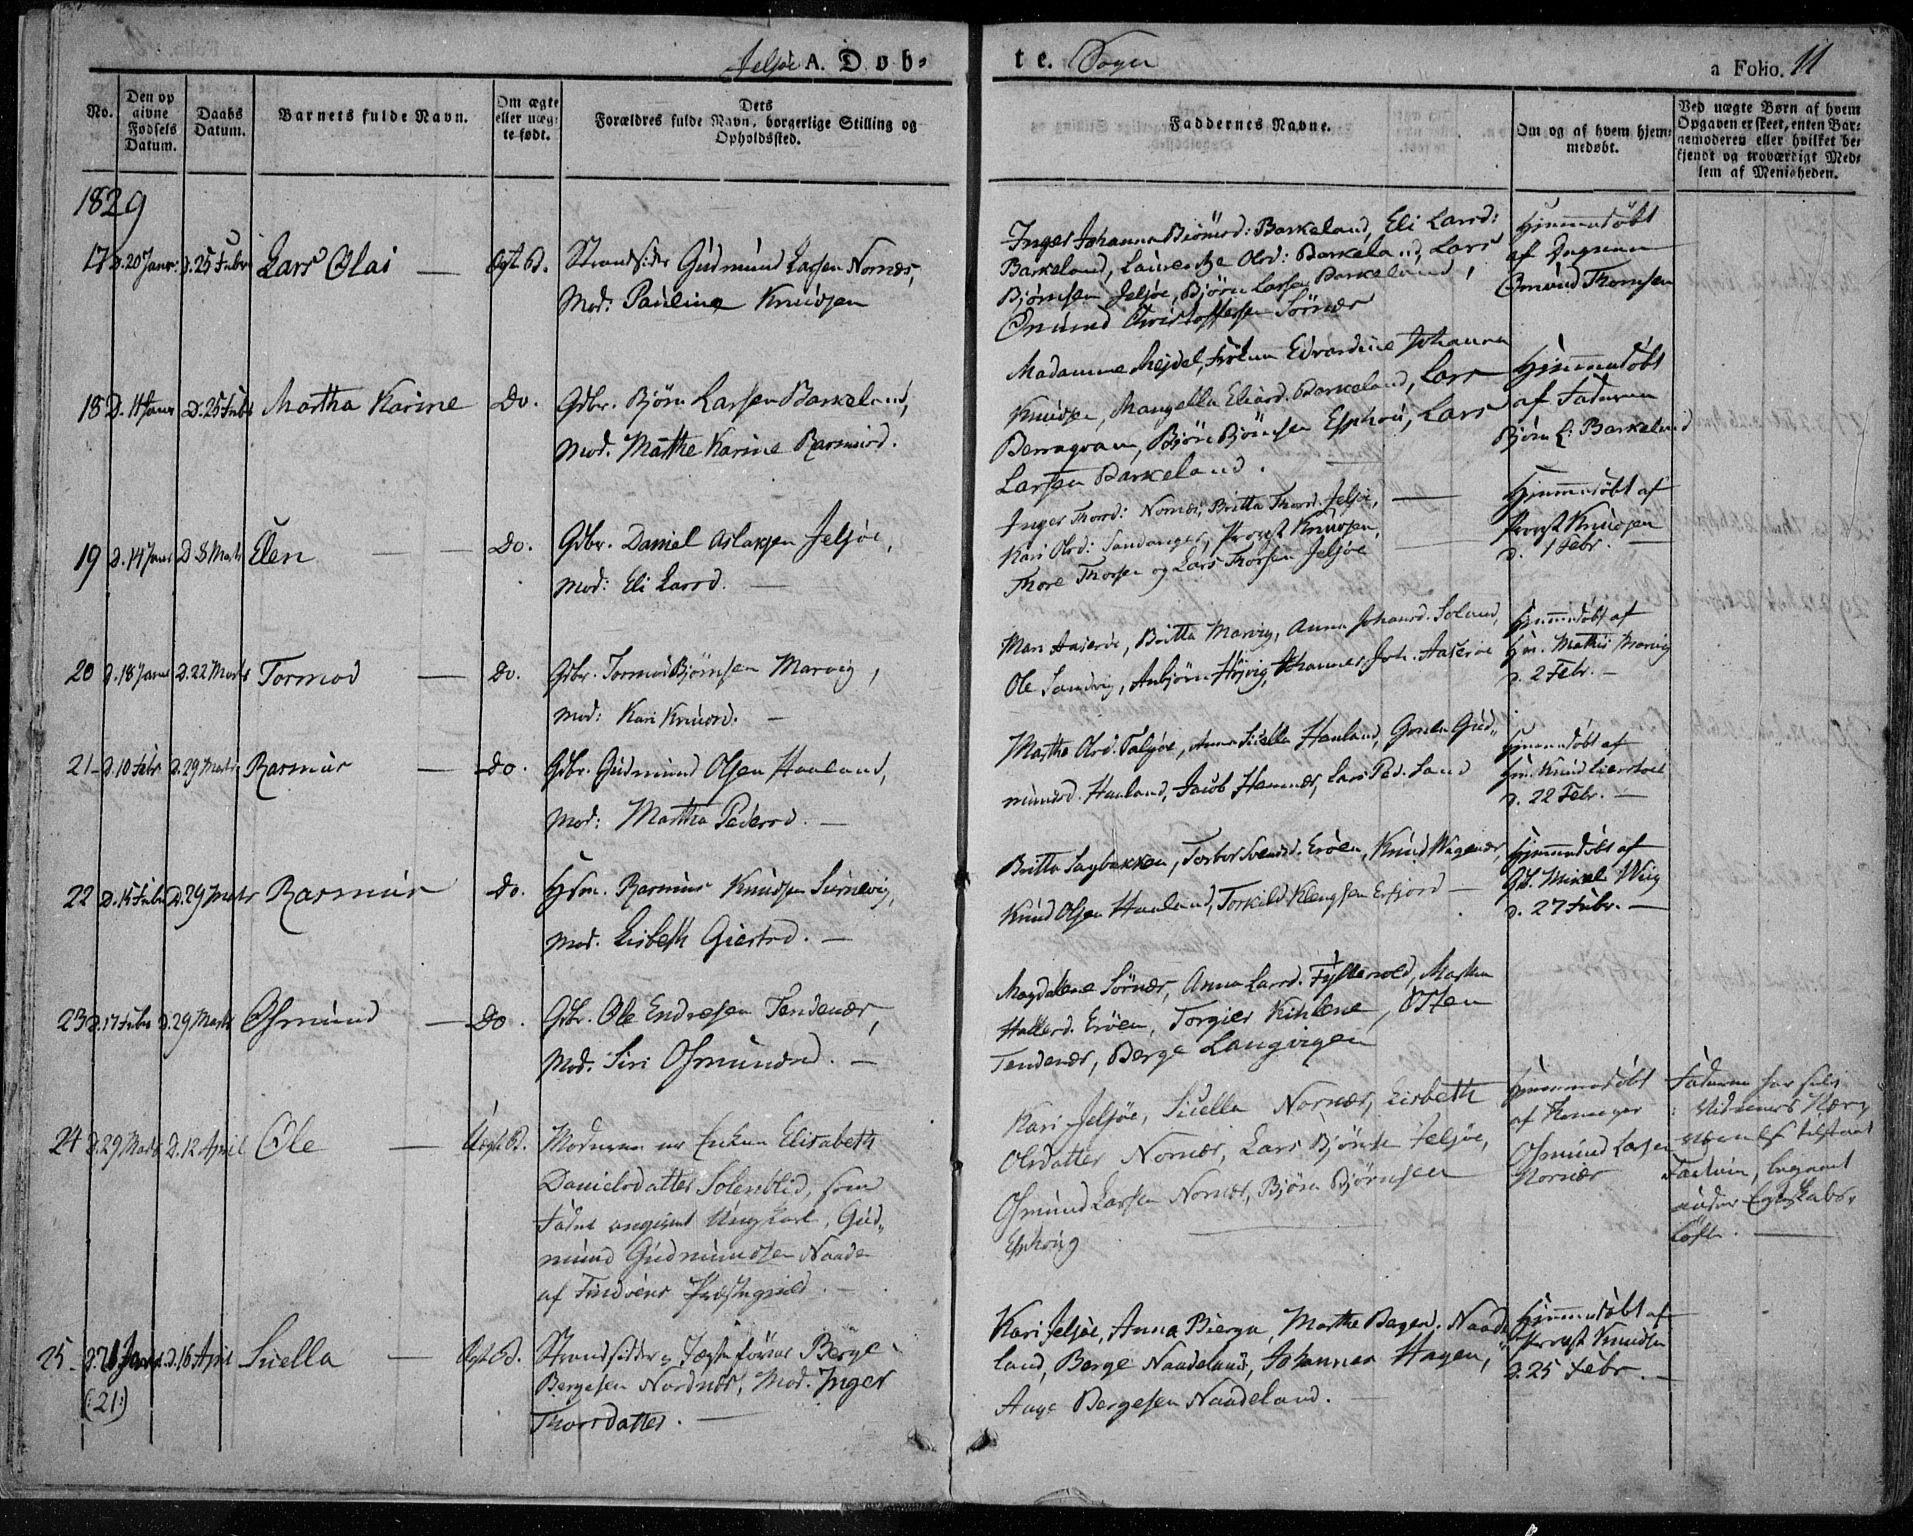 Jelsöe A. Døb-
te. Sogn
a Folio. 11
No.
Den op
givne
Fødsels
Datum.
Daabs
Datum.
Barnets fulde Navn.
Om ægte
eller uæg-
te født.
Dets
Forældres fulde Navn, borgerlige Stilling og
Opholdssted.
Faddernes Navne.
Om og af hvem hjem-
medøbt.
Ved uægte Børn af hvem
Opgaven er skeet, enten Bar-
nemoderen eller hvilket be-
kjendt og troværdigt Med-
lem af Menigheden.
1829
17 D. 20 Janr. D. 25 Febr. Lars Olai — Ægt B. Strandsider Gudmund Larsen Nornæs,
Mod. Pauline Knudsen
Inger Johanna Biörnsd: Barkeland, Eli Larsd:
Barkeland, Laurentze Olsd: Barkeland, Lars
Bjørnsen Jelsöe, Björn Larsen Barkeland,
Osmund Christoffersen Sörnæs
Hjemmedöbt
af
Osmund Thomsen
18 D. 11 Janr D. 25 Febr Martha Karine Do. Gdbr. Bjørn Larsen Barkeland,
Mod. Mathe Karine Rasmusd.
Madamme Mejdel, Fröken Edvardine Johanna
Knudsen, Mangella Eliasd. Barkeland, Lars
Berragvam, Björn Björnsen Espheui, Lars
Larsen Barkeland.
Hjemmedöbt
af Faderen
Björn L: Barkeland
19 D. 14 Janr D. 8 Marts Elen — Do. Gdbr. Daniel Aslaksen Jelsöe,
Mod: Eli Larsd. —
Inger Thorsd: Nornæs, Britta Thorsd. Jelsöe, —
Kari Olsd: Sandanger, Provst Knudsen,
Thore Thorsen og Lars Thorsen Jelsöe
Hjemmedöbt af
Provst Knudsen
d. 1 Febr. —
20 D. 18 Janr D. 22 Marts Tormod — Do. Gdbr. Tormod Bjørnsen Marvig,
Mod: Kari Knudsd. —
Mari Aaseröe, Britta Marvig, Anna Johansd. Soland,
Ole Sandvig, Anbjörn Höjvig, Johannes Joh. Aaseröe
Hjemmedöbt af
Hm. Mathis Marvig
d. 2 Febr. —
21 — D. 10 Febr D. 29 Marts Rasmus — Do. Gdbr. Gudmund Olsen Haaland,
Mod: Martha Pedersd. —
Martha Olsd. Jelsöe, Anna Siella Hauland, Gurila Gud-
mundsd. Hauland, Jacob Hamnæs, Lars Ped. Sand
Hjemmedöbt af
Hm. Knud
d. 22 Febr. —
22 D. 15 Febr D. 29 Marts Rasmus Do. Hsm. Rasmus Knudsen Surnevig,
Mod. Lisbeth Giertsd. —
Britta Sagbakken, Torbor Svensd. Eröen, Knud Wagenæs,
Knud Olsen Hauland, Torkild Klengsen Erfjord —
Hjemmedöbt af
Gb. Mikal Wiig
d. 27 Febr. —
23 D. 17 Febr D. 29 Marts Osmund — Do. Gdbr. Ole Endresen Tendenæs,
Mod. Siri Osmundsd. —
Magdalene Sörnæs, Anna Larsd. Fystervold, Martha
Hallersd. Eröen, Torgier Kihlene, Osten
Tendenæs, Berge Langvigen
24 D. 29 Marts D. 12 April Ole — Uægt B. Moderen er Enken Elisabeth
Danielsdatter Solenblid, som
Fader angivet Ungkarl, Gud-
mund Gudmundsen Naade
af Findöens Præstegield. —
Kari Jelsöe, Siella Nornæs, Lisbeth
Olsdatter Nornæs, Lars Björnse Jelsöe,
Osmund Larsen Nornæs, Björn Björnsen
Esphoug
Hjemmedöbt
af
Osmund Larsen
Nornæs
Faderen har selv
i Vidners
tilstaaet
under Egteskabs-
löfte. —
25 — D. 21 Janr. D. 16 April Siella — Ægt B. Strandsidder og Jægte förer Berge
(:21:) Bergesen Nordnæs, Mod. Inger
Thorsdatter. —
Kari Jelsöe, Anna Bierga, Marthe Bagen. Naade-
land, Berge Naadeland, Johannes Hagen,
Aage Bergesen Naadeland. —
Hjemmedöbt af
Provst Knudsen
d. 25 Febr. —